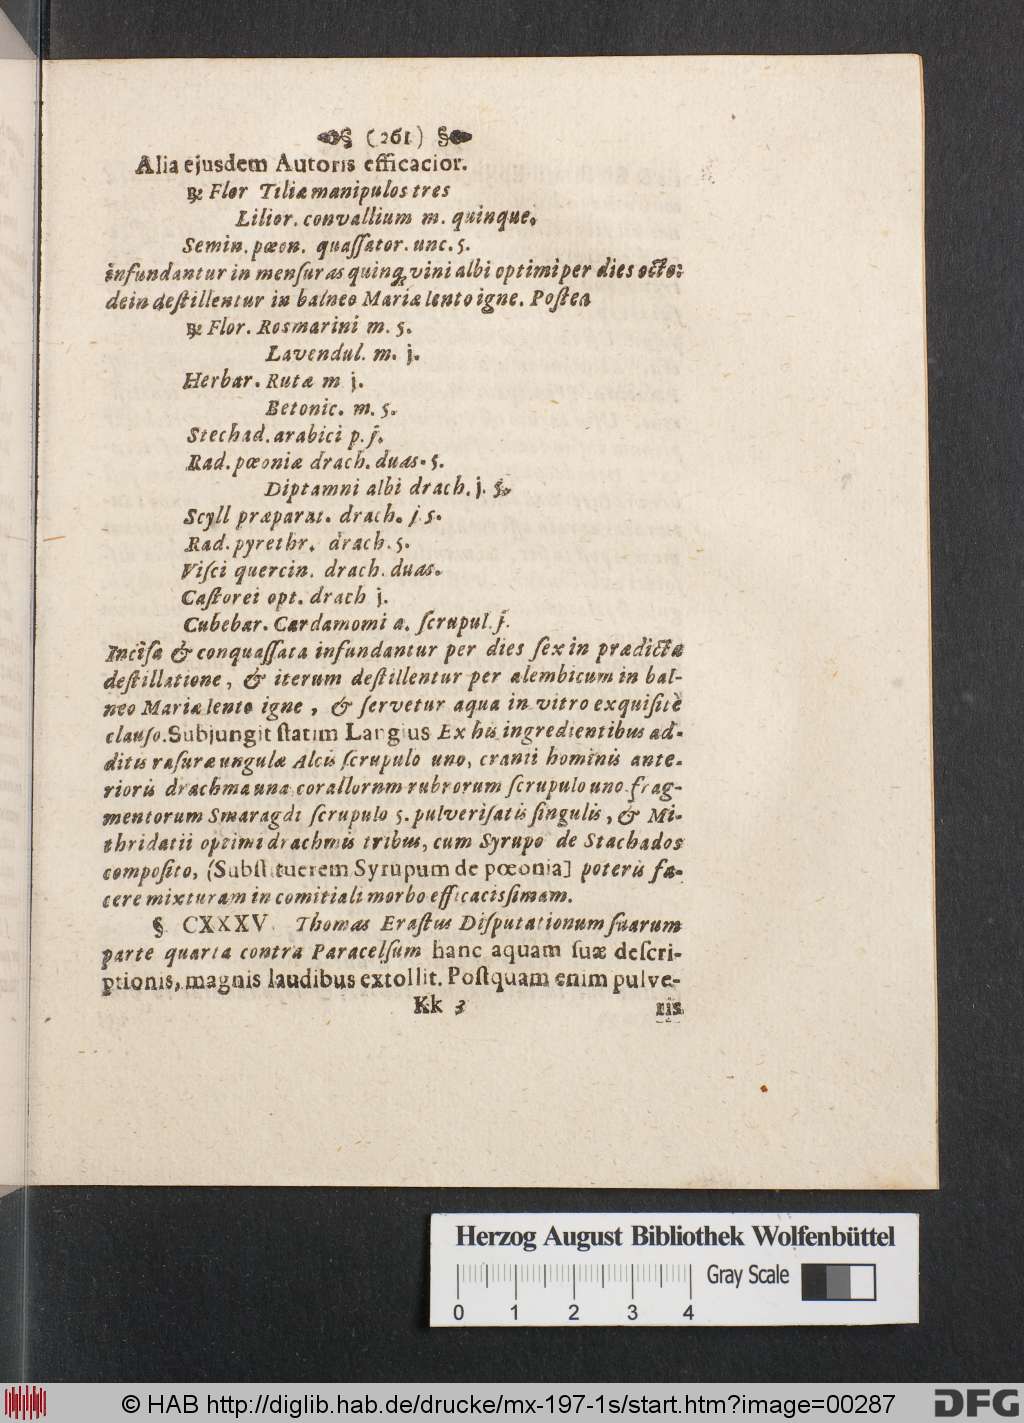 § (261) §
Alia ejusdem Autoris efficacior.
℞ Flor Tiliæ manipulos tres
Lilior. convallium m. quinque.
Semin. pæon. quaſſator. unc. ſ.
infundantur in menſuras quinq; vini albi optimi per dies octo:
dein deſtillentur in balneo Mariæ lento igne. Poſtea
℞ Flor. Rosmarini m. ſ.
Lavendul. m. j.
Herbar. Rutæ m j.
Betonic. m. ſ.
Stechad. arabici p. j.
Rad. pœoniæ drach. duas. ſ.
Diptamni albi drach. j. ſ.
Scyll præparat. drach. j ſ.
Rad. pyrethr. drach. ſ.
Viſci quercin. drach. duas.
Caſtorei opt. drach j.
Cubebar. Cardamomi a. ſcrupul. j.
Inciſa & conquaſſata infundantur per dies ſex in prædicta
deſtillatione, & iterum deſtillentur per alembicum in bal-
neo Mariæ lento igne, & ſervetur aqua in vitro exquiſitè
clauſo. Subjungit ſtatim Langius Ex his ingredientibus ad-
ditis raſuræ ungulæ Alcis ſcrupulo uno, cranii hominis ante-
rioris drachma una corallornm rubrorum ſcrupulo uno frag-
mentorum Smaragdi ſcrupulo ſ. pulveriſatis ſingulis, & Mi-
thridatii optimi drachmis tribus, cum Syrupo de Stachados
compoſito, (Subſtituerem Syrupum de pœonia] poteris fa-
cere mixturam in comitiali morbo efficacisſimam.
§ CXXXV. Thomas Eraſtus Diſputationum ſuarum
parte quarta contra Paracelſum hanc aquam ſuæ deſcri-
ptionis, magnis laudibus extollit. Poſtquam enim pulve-
Kk 3 ris
Herzog August Bibliothek Wolfenbüttel
Gray Scale
0 1 2 3 4
© HAB http://diglib.hab.de/drucke/mx-197-1s/start.htm?image=00287 DFG